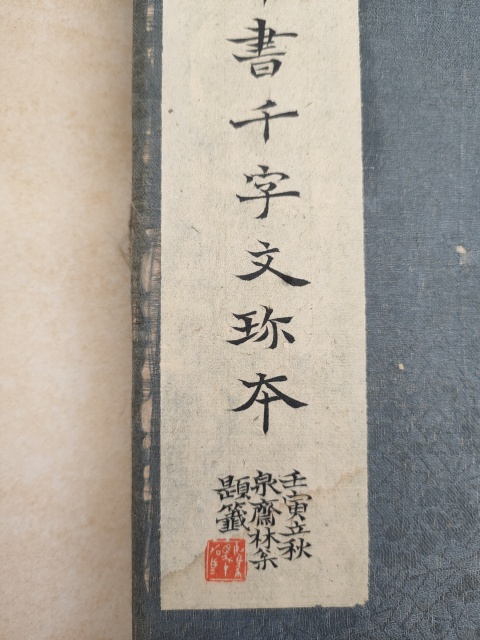 書千字文珎本
壬寅立秋
泉齋林矣
題籤